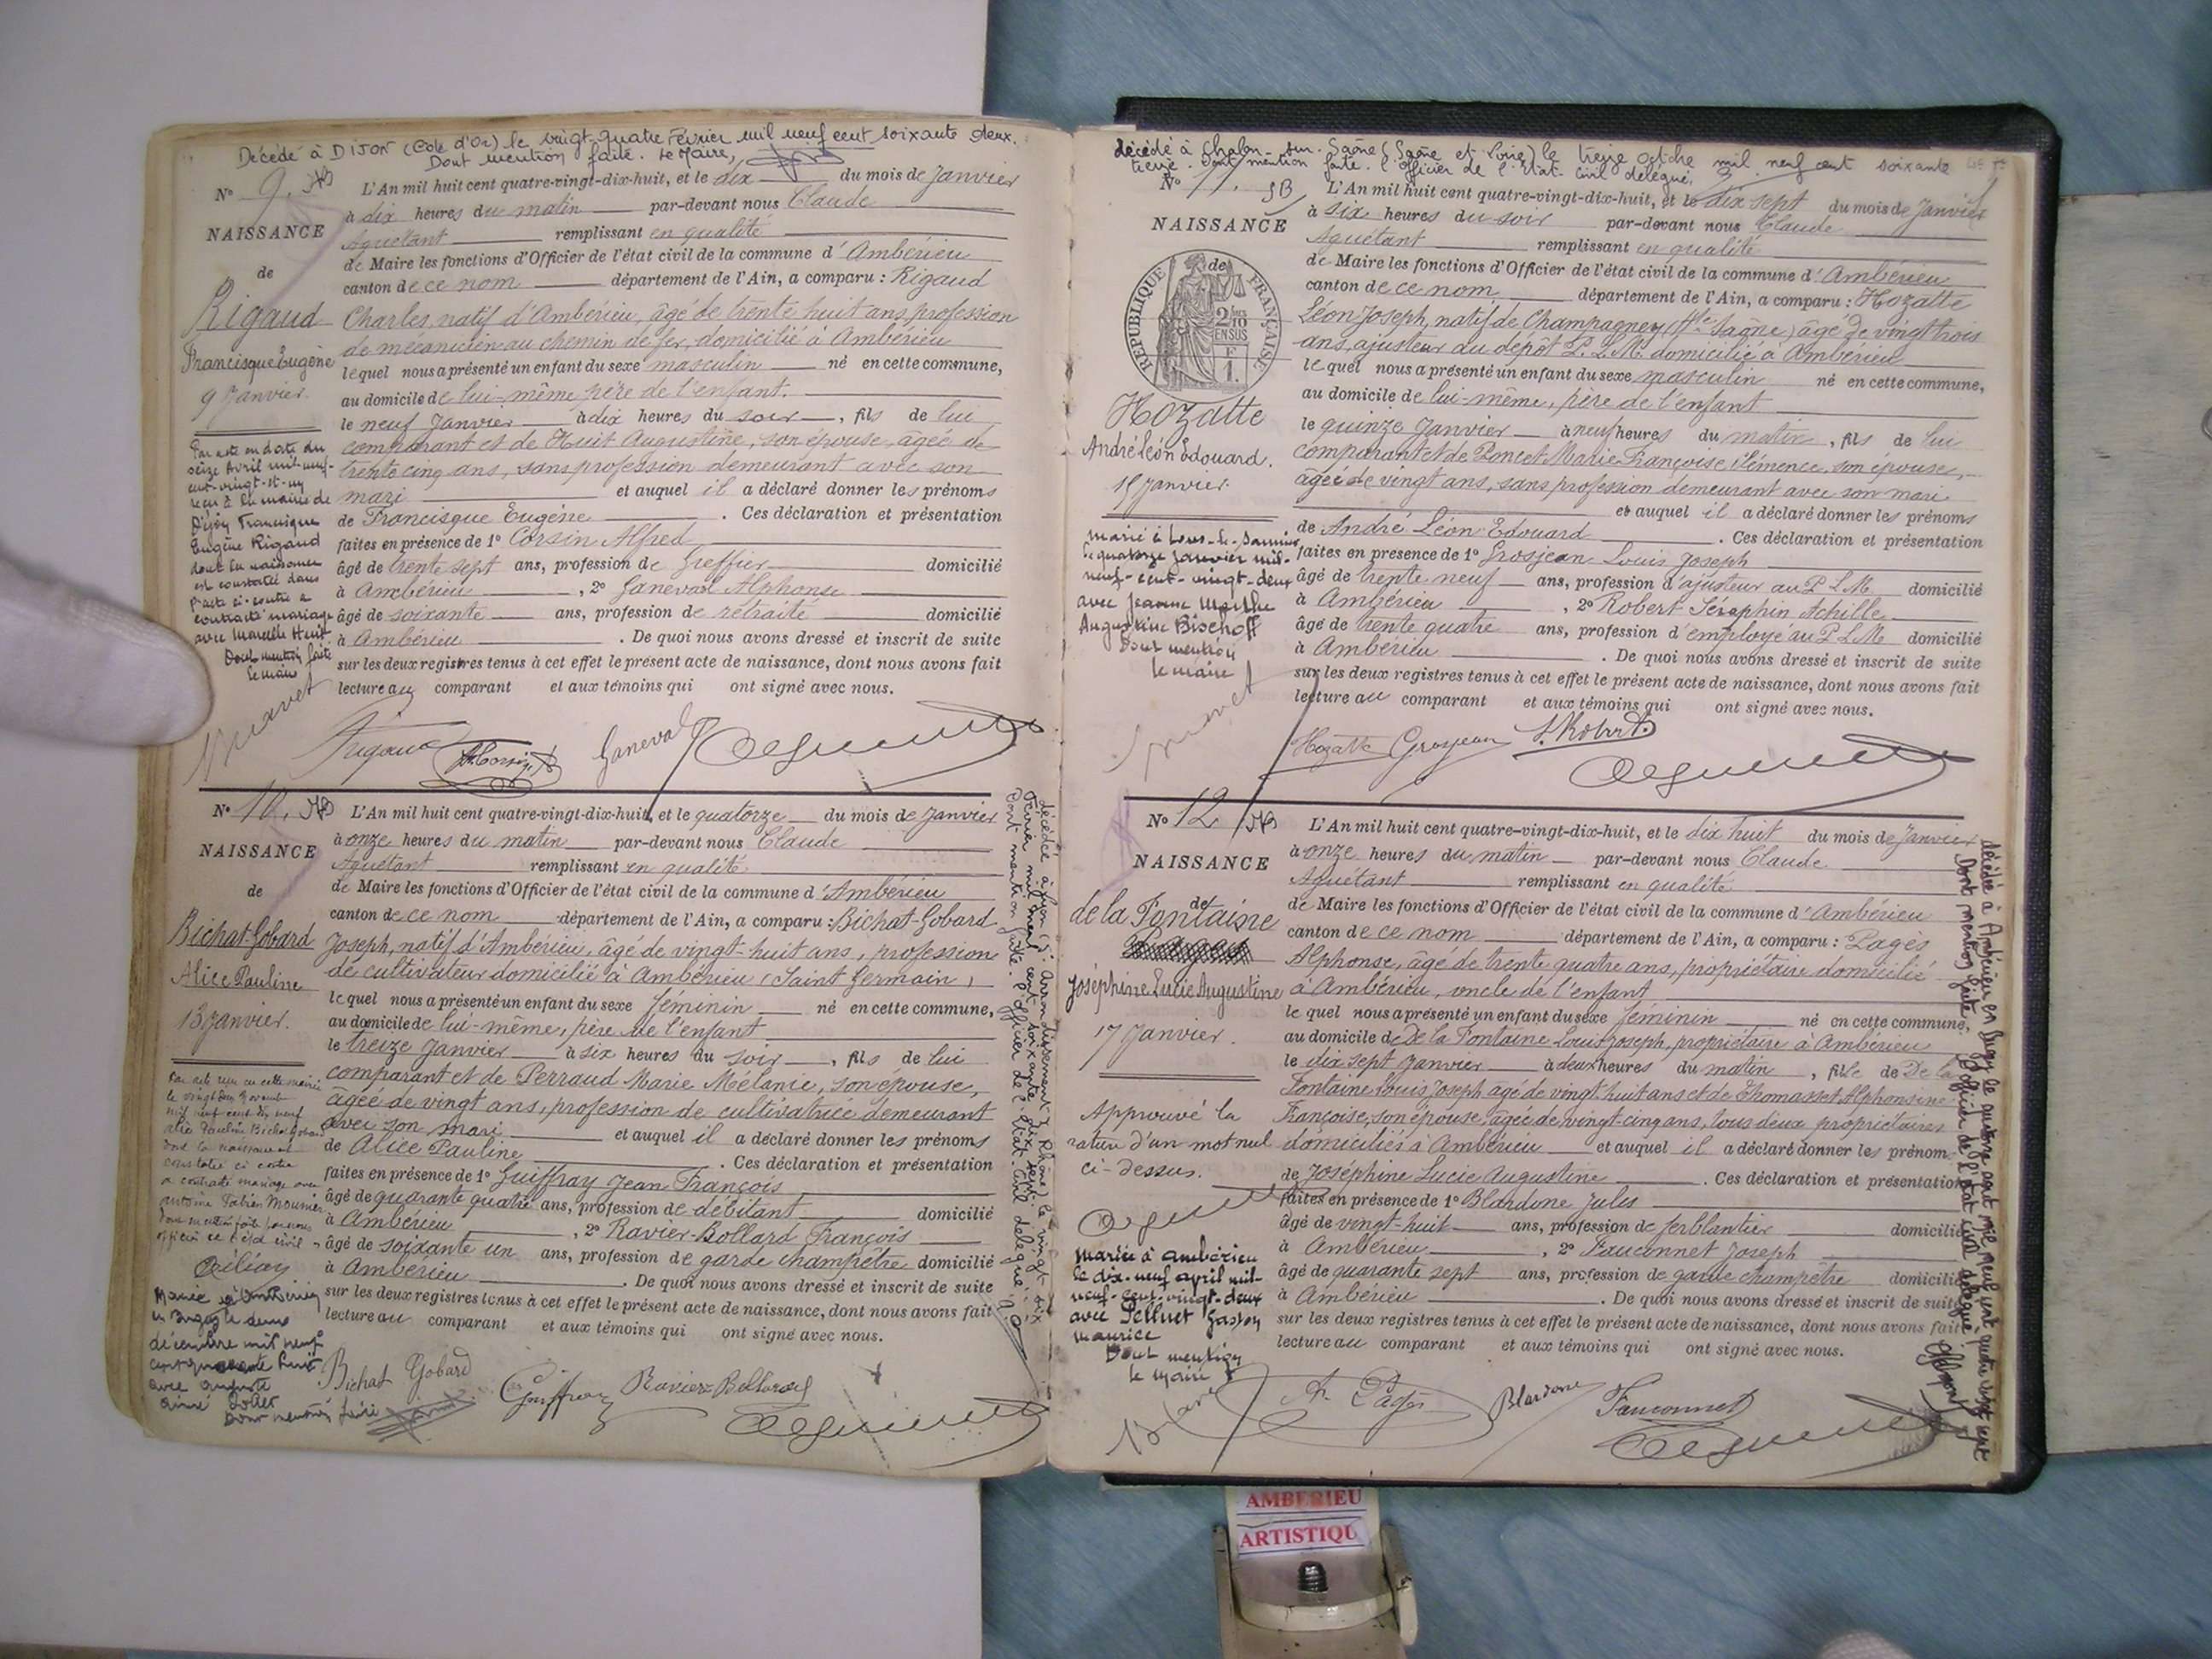 Décédé à DIJON (Côte d'Or) le vingt-quatre Février mil neuf cent soixante deux.
Dont mention faite. Le Maire,
N° 9.
NAISSANCE
de
Rigaud
Francisque Eugène
9 Janvier.
Par acte en date du
seize Avril mil-neuf-
cent-vingt-et-un
reçu à la mairie de
Dijon Francisque
Eugène Rigaud
dont la naissance
est constatée dans
l'acte ci-contre a
contracté mariage
avec Marcelle Huit.
Dont mention faite
Le maire
L'An mil huit cent quatre-vingt-dix-huit, et le dix du mois de Janvier
à dix heures du matin par-devant nous Claude
Aguétant remplissant en qualité
de Maire les fonctions d'Officier de l'état civil de la commune d'Ambérieu
canton de ce nom département de l'Ain, a comparu : Rigaud
Charles, natif d'Ambérieu, âgé de trente huit ans, profession
de mécanicien au chemin de fer, domicilié à Ambérieu
lequel nous a présenté un enfant du sexe masculin né en cette commune,
au domicile de lui-même, père de l'enfant.
le neuf Janvier à dix heures du soir, fils de lui
comparant et de Huit Augustine, son épouse, âgée de
trente cinq ans, sans profession demeurant avec son
mari et auquel il a déclaré donner les prénoms
de Francisque Eugène. Ces déclaration et présentation
faites en présence de 1° Corsin Alfred
âgé de trente sept ans, profession de Greffier domicilié
à Ambérieu, 2° Ganeval Alphonse
âgé de soixante ans, profession de retraité domicilié
à Ambérieu. De quoi nous avons dressé et inscrit de suite
sur les deux registres tenus à cet effet le présent acte de naissance, dont nous avons fait
lecture au comparant et aux témoins qui ont signé avec nous.
Rigaud A. Corsin Ganeval
N° 10.
NAISSANCE
de
Bichat-Gobard
Alice Pauline
13 Janvier.
Par acte reçu en cette mairie
le vingt deux novembre
mil neuf cent dix neuf
Alice Pauline Bichat Gobard
dont la naissance
constatée ci contre
a contracté mariage avec
Antoine Fabien Mounier
officier de l'état civil
Mariée à Ambérieu
en Bugey le deux
décembre mil neuf
cent quarante huit
avec Auguste
Aimé
Dont mention faite
L'An mil huit cent quatre-vingt-dix-huit, et le quatorze du mois de Janvier
à onze heures du matin par-devant nous Claude
Aguétant remplissant en qualité
de Maire les fonctions d'Officier de l'état civil de la commune d'Ambérieu
canton de ce nom département de l'Ain, a comparu : Bichat-Gobard
Joseph, natif d'Ambérieu, âgé de vingt-huit ans, profession
de cultivateur domicilié à Ambérieu (Saint Germain)
lequel nous a présenté un enfant du sexe féminin né en cette commune,
au domicile de lui-même, père de l'enfant
le treize Janvier à six heures du soir, fils de lui
comparant et de Perraud Marie Mélanie, son épouse,
âgée de vingt ans, profession de cultivatrice demeurant
avec son mari et auquel il a déclaré donner les prénoms
de Alice Pauline. Ces déclaration et présentation
faites en présence de 1° Guiffray Jean François
âgé de quarante quatre ans, profession de débitant domicilié
à Ambérieu, 2° Ravier-Bollard François
âgé de soixante un ans, profession de garde champêtre domicilié
à Ambérieu. De quoi nous avons dressé et inscrit de suite
sur les deux registres tenus à cet effet le présent acte de naissance, dont nous avons fait
lecture au comparant et aux témoins qui ont signé avec nous.
Bichat Gobard Guiffray Ravier Bollard
décédée à Lyon (3e Arrondissement) (Rhône) le vingt-six
Février mil neuf cent soixante dix sept.
Dont mention faite. l'officier de l'état civil délégué.
décédé à Chalon-sur-Saône (Saône et Loire) le treize octobre mil neuf cent soixante
treize. Dont mention faite. l'Officier de l'Etat-civil délégué,
N° 11.
NAISSANCE
de
RÉPUBLIQUE FRANÇAISE
Hozatte
André Léon Edouard.
15 Janvier.
marié à Lons-le-Saunier
le quatorze Janvier mil-
neuf-cent-vingt-deux
avec Jeanne Marthe
Augustine Bischoff
Dont mention
le maire
L'An mil huit cent quatre-vingt-dix-huit, et le dix sept du mois de Janvier
à six heures du soir par-devant nous Claude
Aguétant remplissant en qualité
de Maire les fonctions d'Officier de l'état civil de la commune d'Ambérieu
canton de ce nom département de l'Ain, a comparu : Hozatte
Léon Joseph, natif de Champagney (Hte Saône) âgé de vingt trois
ans, ajusteur au dépôt P. L. M. domicilié à Ambérieu
lequel nous a présenté un enfant du sexe masculin né en cette commune,
au domicile de lui-même, père de l'enfant
le quinze Janvier à neuf heures du matin, fils de lui
comparant et de Poncet Marie Françoise Clémence, son épouse,
âgée de vingt ans, sans profession demeurant avec son mari
et auquel il a déclaré donner les prénoms
de André Léon Edouard. Ces déclaration et présentation
faites en présence de 1° Grosjean Louis Joseph
âgé de trente neuf ans, profession d'ajusteur au P L M domicilié
à Ambérieu, 2° Robert Séraphin Achille
âgé de trente quatre ans, profession d'employé au P L M domicilié
à Ambérieu. De quoi nous avons dressé et inscrit de suite
sur les deux registres tenus à cet effet le présent acte de naissance, dont nous avons fait
lecture au comparant et aux témoins qui ont signé avec nous.
Hozatte Grosjean S. Robert
N° 12
NAISSANCE
de
de la Fontaine
Joséphine Lucie Augustine
17 Janvier.
Approuvé la
rature d'un mot nul
ci-dessus.
Mariée à Ambérieu
le dix-neuf avril mil-
neuf-cent-vingt-deux
avec Pelluet Gaston
Maurice
Dont mention
le maire
L'An mil huit cent quatre-vingt-dix-huit, et le dix huit du mois de Janvier
à onze heures du matin par-devant nous Claude
Aguétant remplissant en qualité
de Maire les fonctions d'Officier de l'état civil de la commune d'Ambérieu
canton de ce nom département de l'Ain, a comparu : Pagès
Alphonse, âgé de trente quatre ans, propriétaire domicilié
à Ambérieu, oncle de l'enfant
lequel nous a présenté un enfant du sexe féminin né en cette commune,
au domicile de De la Fontaine Louis Joseph, propriétaire à Ambérieu
le dix sept Janvier à deux heures du matin, fille de De la
Fontaine Louis Joseph âgé de vingt huit ans et de Thomasset Alphonsine
Françoise, son épouse, âgée de vingt-cinq ans, tous deux propriétaires
domiciliés à Ambérieu et auquel il a déclaré donner les prénoms
de Joséphine Lucie Augustine. Ces déclaration et présentation
faites en présence de 1° Blardone Jules
âgé de vingt-huit ans, profession de ferblantier domicilié
à Ambérieu, 2° Fauconnet Joseph
âgé de quarante sept ans, profession de garde champêtre domicilié
à Ambérieu. De quoi nous avons dressé et inscrit de suite
sur les deux registres tenus à cet effet le présent acte de naissance, dont nous avons fait
lecture au comparant et aux témoins qui ont signé avec nous.
A. Pagès Blardone Fauconnet
décédée à Ambérieu en Bugey le quatorze août mil neuf cent quatre vingt sept
Dont mention faite. L'officier de l'état civil délégué
AMBERIEU
ARTISTIQU